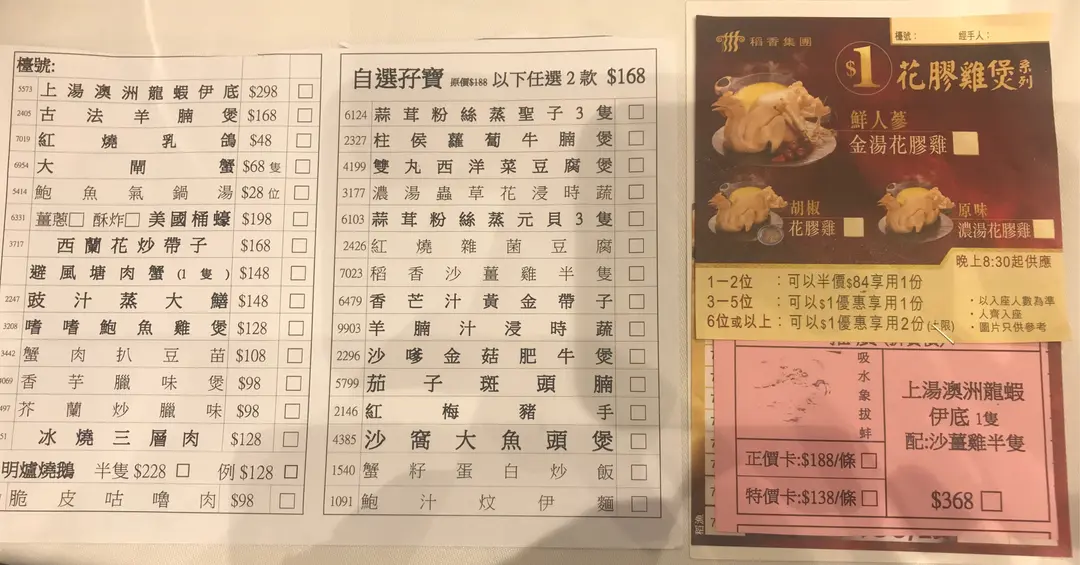 檯號:
5573 上湯澳洲龍蝦伊底 $298
2405 古法羊腩煲 $168
7019 紅燒乳鴿 $48
6954 大閘蟹 $68 隻
5414 鮑魚氣鍋湯 $28 位
6331 薑蔥 酥炸 美國桶蠔 $198
3717 西蘭花炒帶子 $168
避風塘肉蟹(1隻) $148
2247 豉汁蒸大鱔 $148
3208 嗜嗜鮑魚雞煲 $128
3442 蟹肉扒豆苗 $108
069 香芋臘味煲 $98
497 芥蘭炒臘味 $98
51 冰燒三層肉 $128
明爐燒鵝 半隻 $228 例 $128
脆皮咕嚕肉 $98
自選孖寶 原價$188 以下任選2款 $168
6124 蒜茸粉絲蒸聖子3隻
2327 柱侯蘿蔔牛腩煲
4199 雙丸西洋菜豆腐煲
3177 濃湯蟲草花浸時蔬
6103 蒜茸粉絲蒸元貝3隻
2426 紅燒雜菌豆腐
7023 稻香沙薑雞半隻
6479 香芒汁黃金帶子
9903 羊腩汁浸時蔬
2296 沙嗲金菇肥牛煲
5799 茄子斑頭腩
2146 紅梅豬手
4385 沙窩大魚頭煲
1540 蟹籽蛋白炒飯
1091 鮑汁炆伊麵
稻香集團
檯號: 經手人:
$1 花膠雞煲系列
鮮人蔘
金湯花膠雞
胡椒
花膠雞
原味
濃湯花膠雞
晚上8:30起供應
1一2位 :可以半價$84享用1份
3一5位 :可以$1優惠享用1份
6位或以上:可以$1優惠享用2份(上限)
・以入座人數為準
・人齊入座
・圖片只供參考
吸水象拔蚌
正價卡:$188/條
特價卡:$138/條
上湯澳洲龍蝦
伊底 1隻
配:沙薑雞半隻
$368